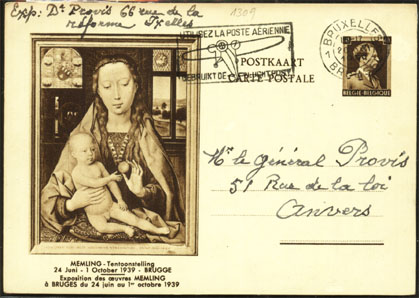 Exp: Dr Provis 66 rue de la
réforme Ixelles
1309
UTILISEZ LA POSTE AÉRIENNE
GEBRUIKT DE LUCHTPOST
POSTKAART
CARTE POSTALE
BRUXELLES
BELGIE-BELGIQUE
Mr le général Provis
51 Rue de la loi
Anvers
MEMLING - Tentoonstelling
24 Juni - 1 October 1939 - BRUGGE
Exposition des œuvres MEMLING
à BRUGES du 24 juin au 1er octobre 1939